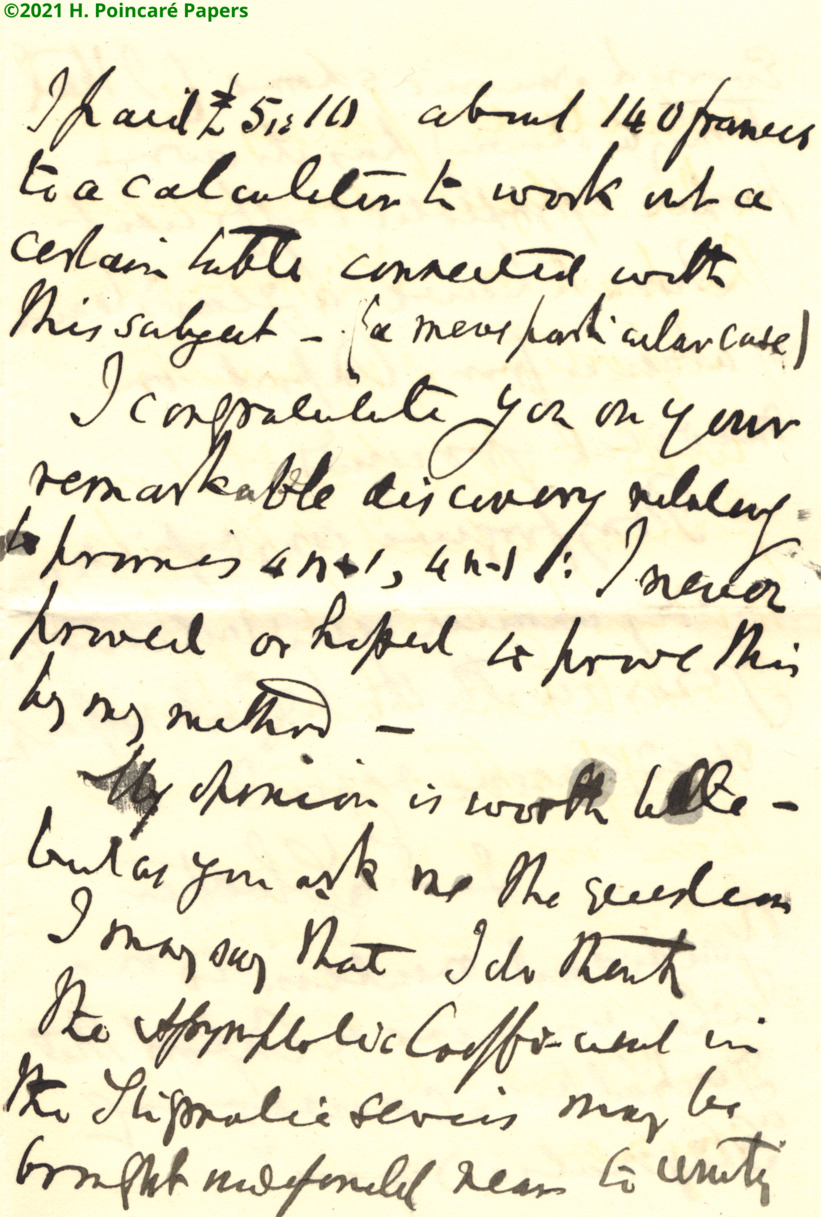 ©2021 H. Poincaré Papers
I paid £5,,10 about 140 francs
to a calculator to work out a
certain table connected with
this subject – (a mere particular case)
I congratulate you on your
remarkable discovery relating
to primes 4n+1, 4n-1 : I never
proved or hoped to prove this
by my method –
My opinion is worth little –
but as you ask me the question
I may say that I do think
the Asymptotic Coefficient in
the Stigmatic series may be
brought near to unity